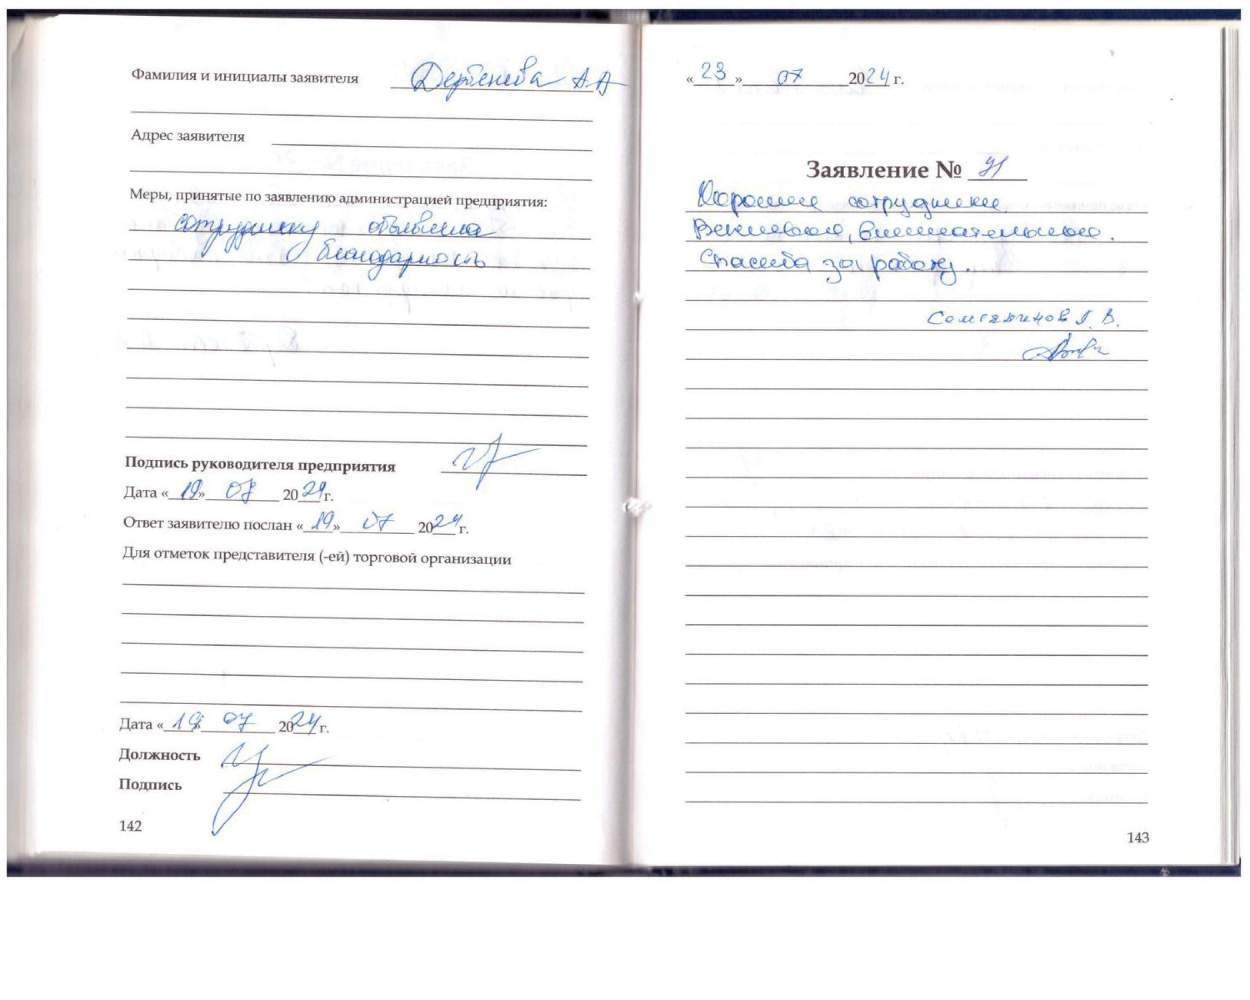 Фамилия и инициалы заявителя Дербенева А А
Адрес заявителя
Меры, принятые по заявлению администрацией предприятия:
сотруднику объявлена
благодарность
Подпись руководителя предприятия
Дата «19» 07 2024 г.
Ответ заявителю послан «19» 07 2024 г.
Для отметок представителя (-ей) торговой организации
Дата «19» 07 2024 г.
Должность
Подпись
142
«23» 07 2024 г.
Заявление №
Хорошие сотрудники
Вежливые, внимательные.
Спасибо за работу.
В.
143